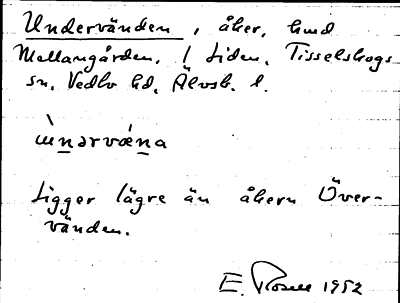 Undervänden, åker, hmd
Mellangården, / Liden, Tisselskogs
sn, Vedbo hd, Älvsb. l.
ùnərvǽna
Ligger lägre än åkern Över-
vänden.
E. Rosell 1952